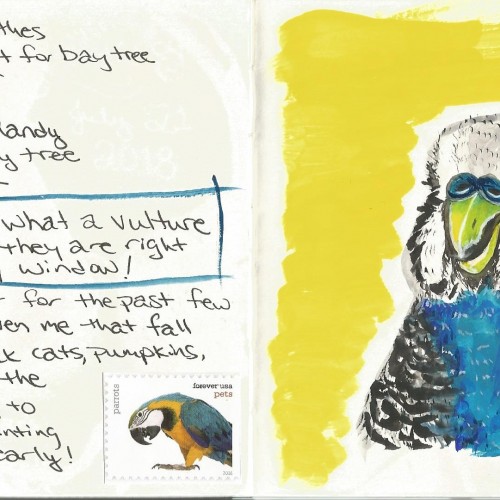 thes
t for bay tree
landy
y tree
What a vulture
they are right
window!
r for the past few
en me that fall
k cats, pumpkins,
the
, to
nting
early!
parrots
forever usa
pets